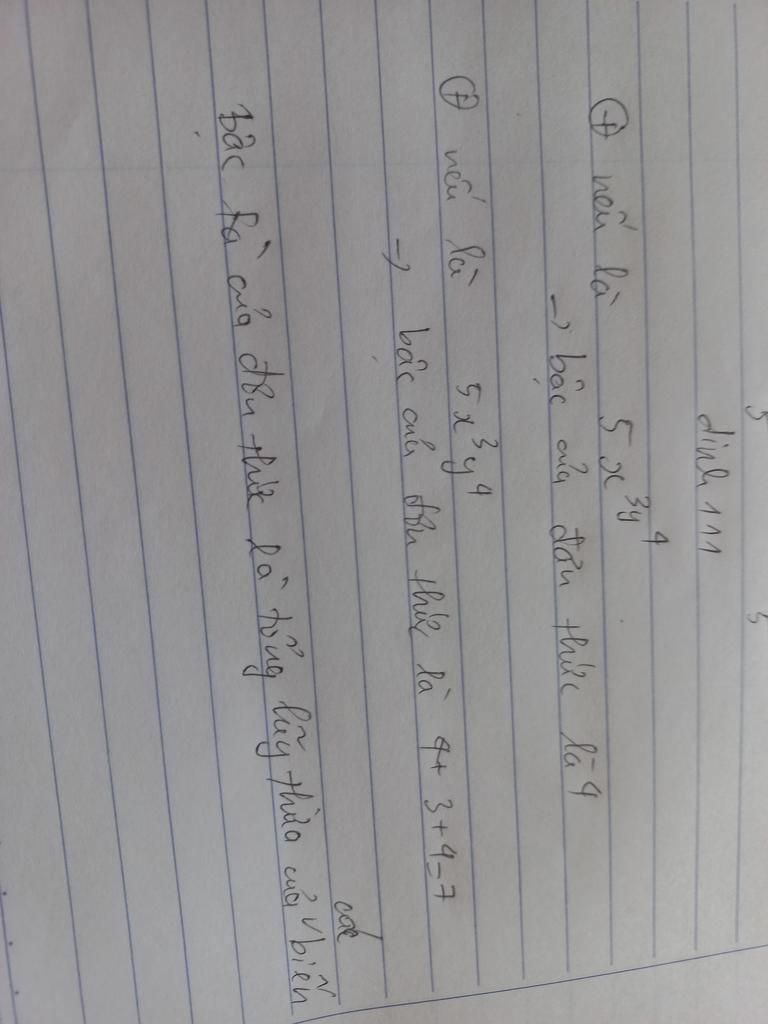 đỉnh 111
⊕ nếu là 5x^3y^4
→ bậc của đơn thức là 4
⊕ nếu là 5x³y⁴
→ bậc của đơn thức là 4+3+4=7
bậc là của đơn thức là tổng lũy thừa của các biến